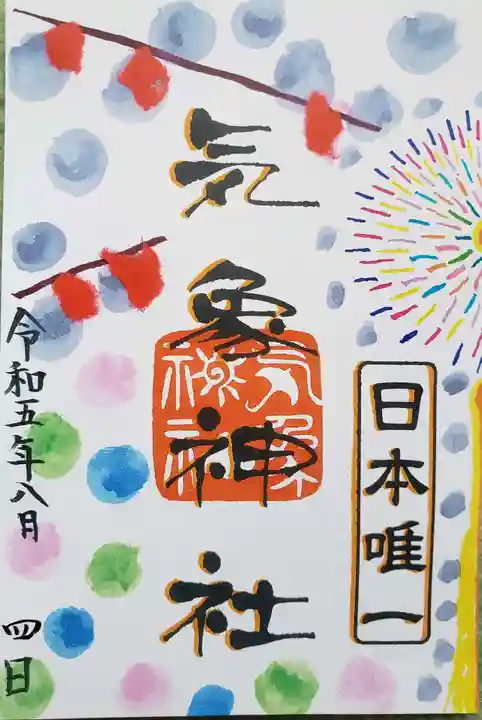 日本唯一
気象神社
気象神社
令和五年八月 四日